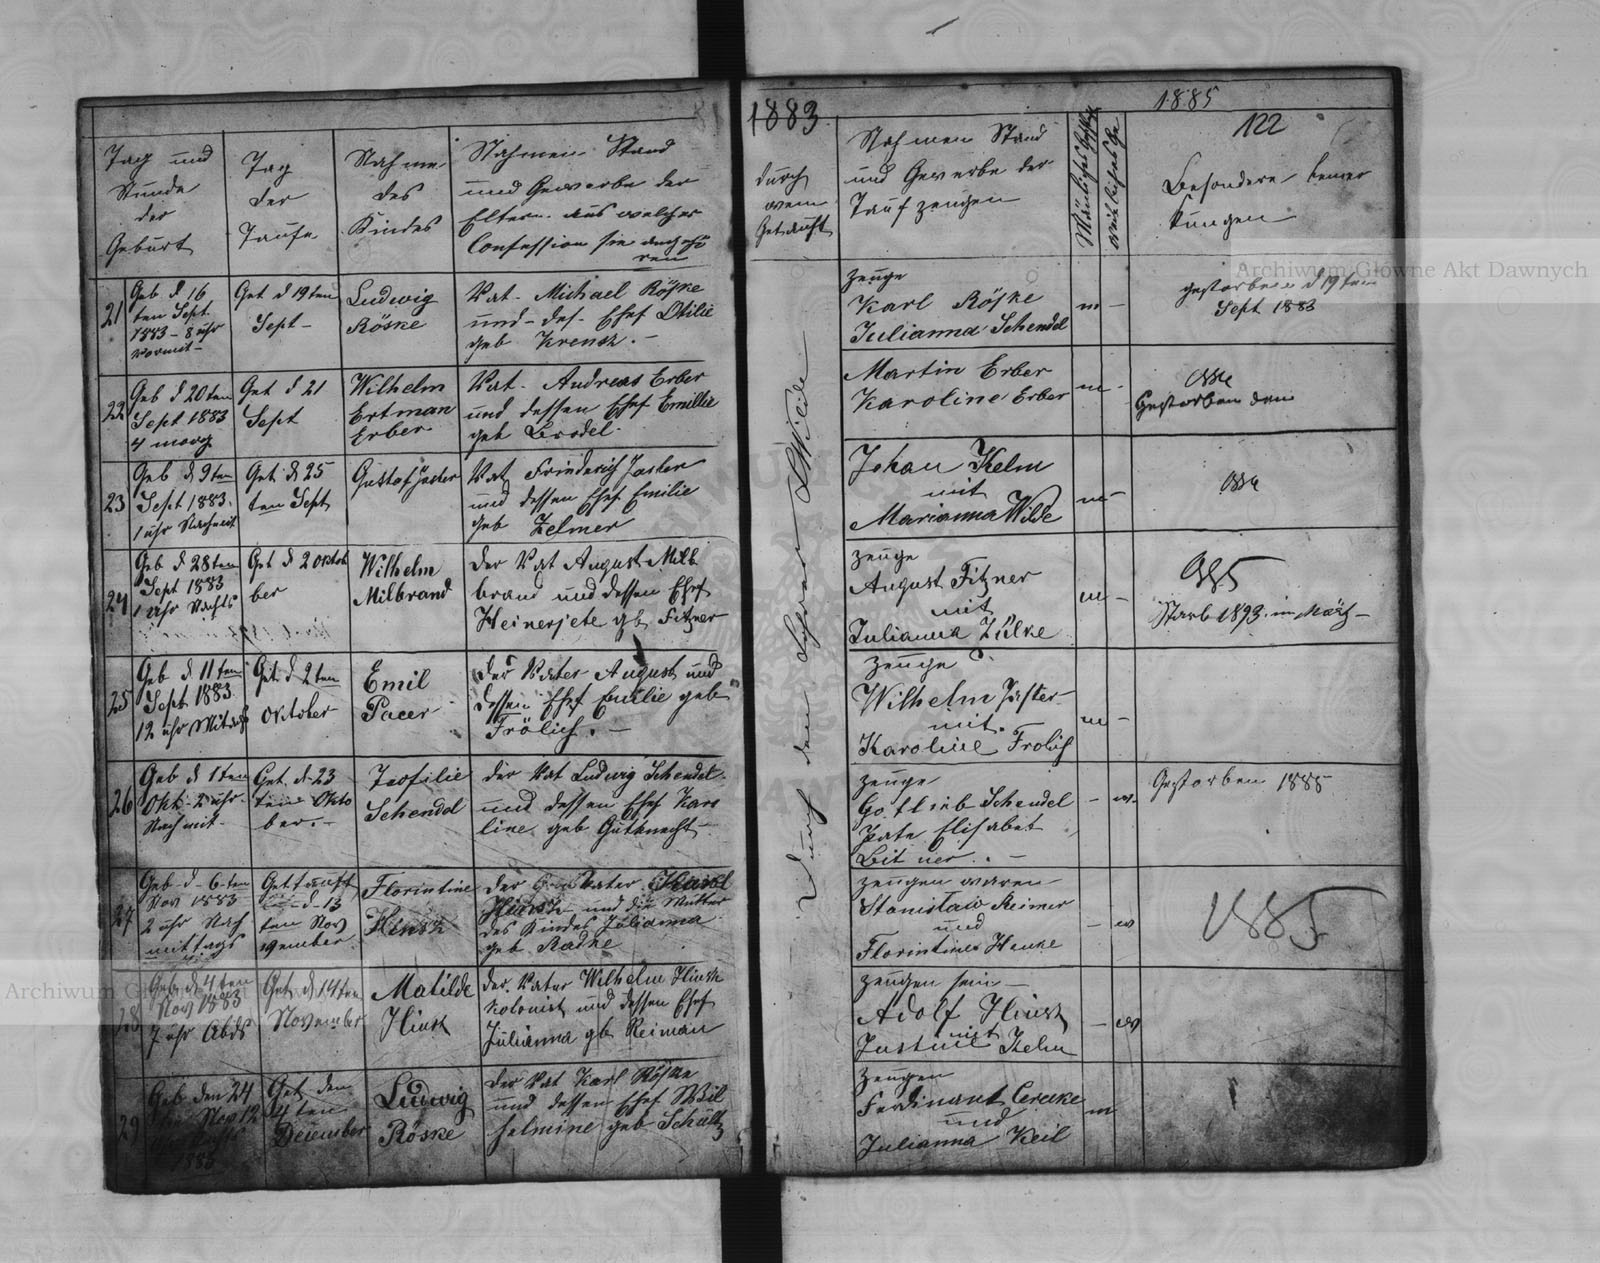 1883
1885
122
Tag und
Stunde
der
Geburt
Tag
der
Taufe
Nahme
des
Kindes
Nahmen Stand
und Gewerbe der
Eltern aus welcher
Confession sie angehö
ren
durch
wem
Getauft
Nahmen Stand
und Gewerbe der
Taufzeugen
Besondere bemer
kungen
21
Geb d 16
ten Sept.
1883 - 8 uhr
vormit-
Get d 19ten
Sept-
Ludwig
Röske
Vat. Michael Röske
und des. Ehef Otilie
geb Krensz.-
zeuge
Karl Röske
Julianna Schendel
m -
gestorben d 19ten
Sept 1883
22
Geb d 20ten
Sept 1883
4 morg
Get d 21
Sept
Wilhelm
Ertman
Erber
Vat. Andreas Erber
und dessen Ehef Emillie
geb Brodel
Martin Erber
Karoline Erber
m -
Gestorben den
23
Geb d 9ten
Sept 1883.
1 uhr Nachmit
Get d 25
ten Sept
Gustaf Jaster
Vat Friederich Jaster
und dessen Ehef Emilie
geb Zelmer
Johan Kelm
mit
Marianna Wilde
m -
24
Geb d 28ten
Sept 1883
1 Uhr Nachts
Get d 2 oktob
ber
Wilhelm
Milbrand
der Vat August Milb
brand und dessen Ehef
Heinerjete gb Fitzner
zeuge
August Fitzner
mit
Julianna Zülke
m -
885
Starb 1893 im März -
25
Geb d 11ten
Sept 1883
12 uhr Mitags
Get d 2ten
Oktober
Emil
Pacer
der Vater August und
dessen Ehef Emilie geb
Frölich. -
zeuge
Wilhelm Jaster
mit.
Karoline Frolich
m -
26
Geb d 1ten
Okt. 2 uhr
Nachmit-
Get d 23
ten Okto
ber.-
Teofilie
Schendel
der Vat Ludwig Schendel
und dessen Ehef Karo
line geb Gutknecht-
zeuge
Gottlieb Schendel
Pate Elisabet
Bitner. -
- w-
Gestorben 1885
27
Geb d 6ten
Nov 1883
2 uhr Nach
mittags
Gettauft
d 13
ten Nov
vember
Florintine
Hinsz
der Gros Vater
Hinsz und die Mutter
des Kindes Julianna
geb Radke
zeugen waren
Stanislaw Reimer
und
Florintine Henke
- w
1885
28
Geb d 4ten
Nov 1883
7 uhr Abds
Get d 14ten
November
Matilde
Hinsz
der Vater Wilhelm Hinsz
Kolonist und dessen Ehef
Julianna gb Reiman
zeugen sein -
Adolf Hinsz
mit
Justine Kelm
- w
29
Geb den 24
Nov 12
1883
Get den
4ten
December
Ludwig
Röske
der Vat Karl Röske
und dessen Ehef Wil
helmine geb Schultz
zeugen
Ferdinant
und
Julianna Keil
m
Durch den Lehrer Wilde
Archiwum Główne Akt Dawnych
Archiwum